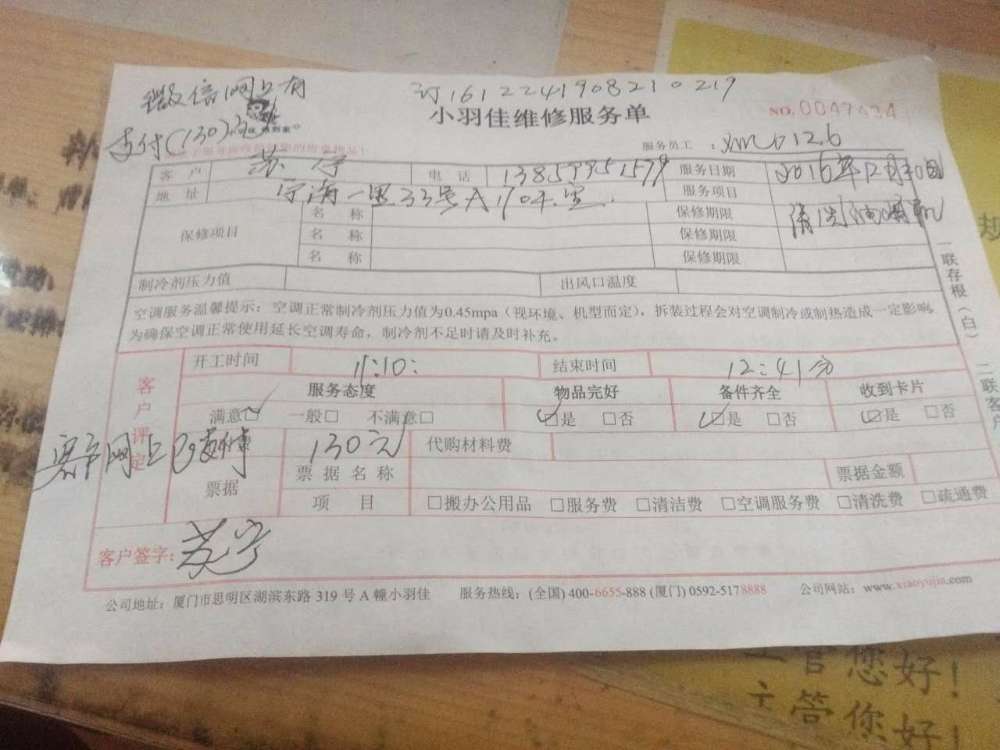 微信网上有 订161224190821 0219
支付(130)元
小羽佳维修服务单 NO.0047424
服务员工：xm0126
客户 苏宁 电话 13859951579 服务日期 2016年12月30日
地址 宁海一里33号A1904室 服务项目
保修项目 名称 保修期限 清洗油烟机
名称 保修期限
名称 保修期限
制冷剂压力值 出风口温度
空调服务温馨提示：空调正常制冷剂压力值为0.45mpa（视环境、机型而定），拆装过程会对空调制冷或制热造成一定影响，
为确保空调正常使用延长空调寿命，制冷剂不足时请及时补充。
一联存根（白）
二联客户
客户评定
开工时间 11:10: 结束时间 12:41分
服务态度 物品完好 备件齐全 收到卡片
满意☑ 一般□ 不满意□ ☑是 □否 ☑是 □否 ☑是 □否
客户网上已支付 130元 代购材料费
票据 票据名称 票据金额
项目 □搬办公用品 □服务费 □清洁费 □空调服务费 □清洗费 □疏通费
客户签字：苏宁
公司地址：厦门市思明区湖滨东路 319 号 A 幢小羽佳 服务热线：(全国) 400-6655-888 (厦门) 0592-5178888 公司网站：www.xiaoyujia.com
主管您好！
主管您好！